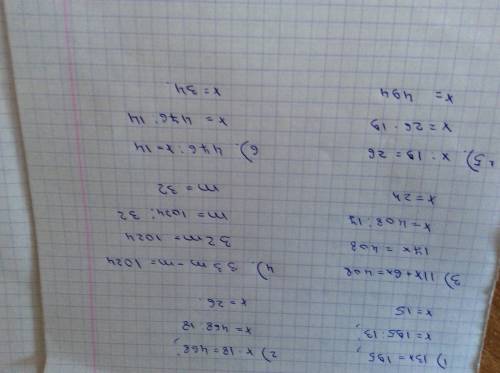 1) 13x = 195
x = 195 : 13;
x = 15
2) x · 18 = 468;
x = 468 : 18
x = 26.
3) 11x + 6x = 408
17x = 408
x = 408 : 17
x = 24
4). 33m - m = 1024
32m = 1024
m = 1024 : 32
m = 32
5). x : 19 = 26
x = 26 · 19
x = 494
6). 476 : x = 14
x = 476 : 14
x = 34.